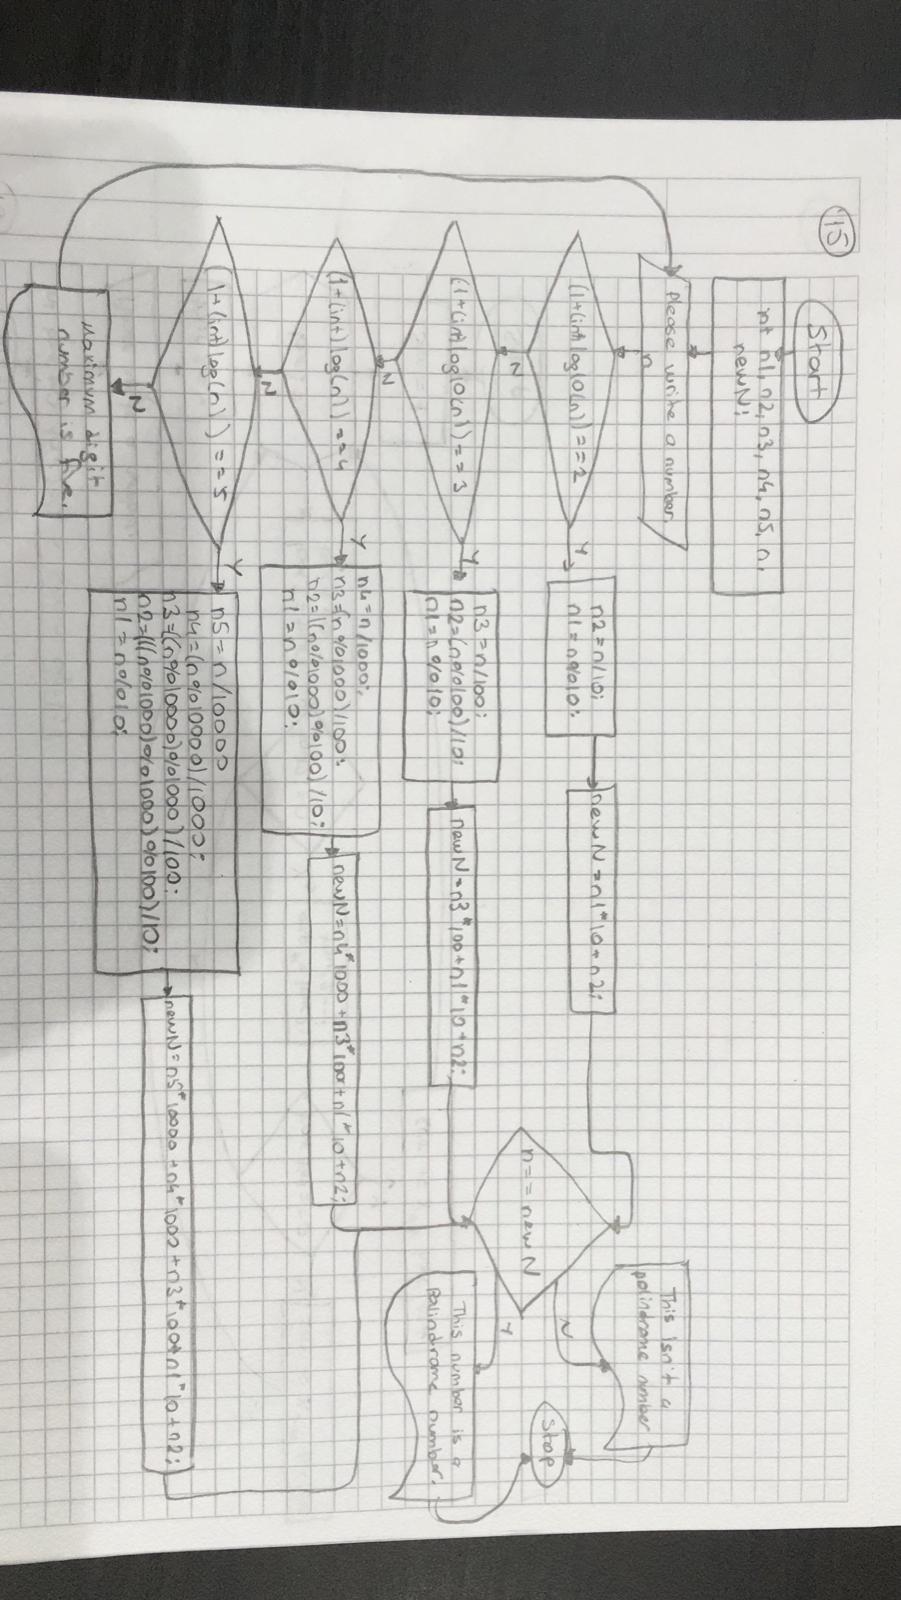 15
Start
int n1, n2, n3, n4, n5, n,
newN;
Please write a number.
n
(1+(int)log10(n))==2
Y
n2=n/10;
n1=n%10;
newN=n1*10+n2;
N
(1+(int)log10(n))==3
Y
n3=n/100;
n2=(n%100)/10;
n1=n%10;
newN=n3*100+n1*10+n2;
N
(1+(int)log(n))==4
Y
n4=n/1000;
n3=(n%1000)/100;
n2=((n%1000)%100)/10;
n1=n%10;
newN=n4*1000+n3*100+n1*10+n2;
N
(1+(int)log(n))==5
Y
n5=n/10000
n4=(n%10000)/1000;
n3=((n%10000)%1000)/100;
n2=(((n%10000)%1000)%100)/10;
n1=n%10;
newN=n5*10000+n4*1000+n3*100+n1*10+n2;
N
Maximum digit
number is five.
n==newN
N
This isn't a
palindrome number
Y
This number is a
palindrome number.
Stop